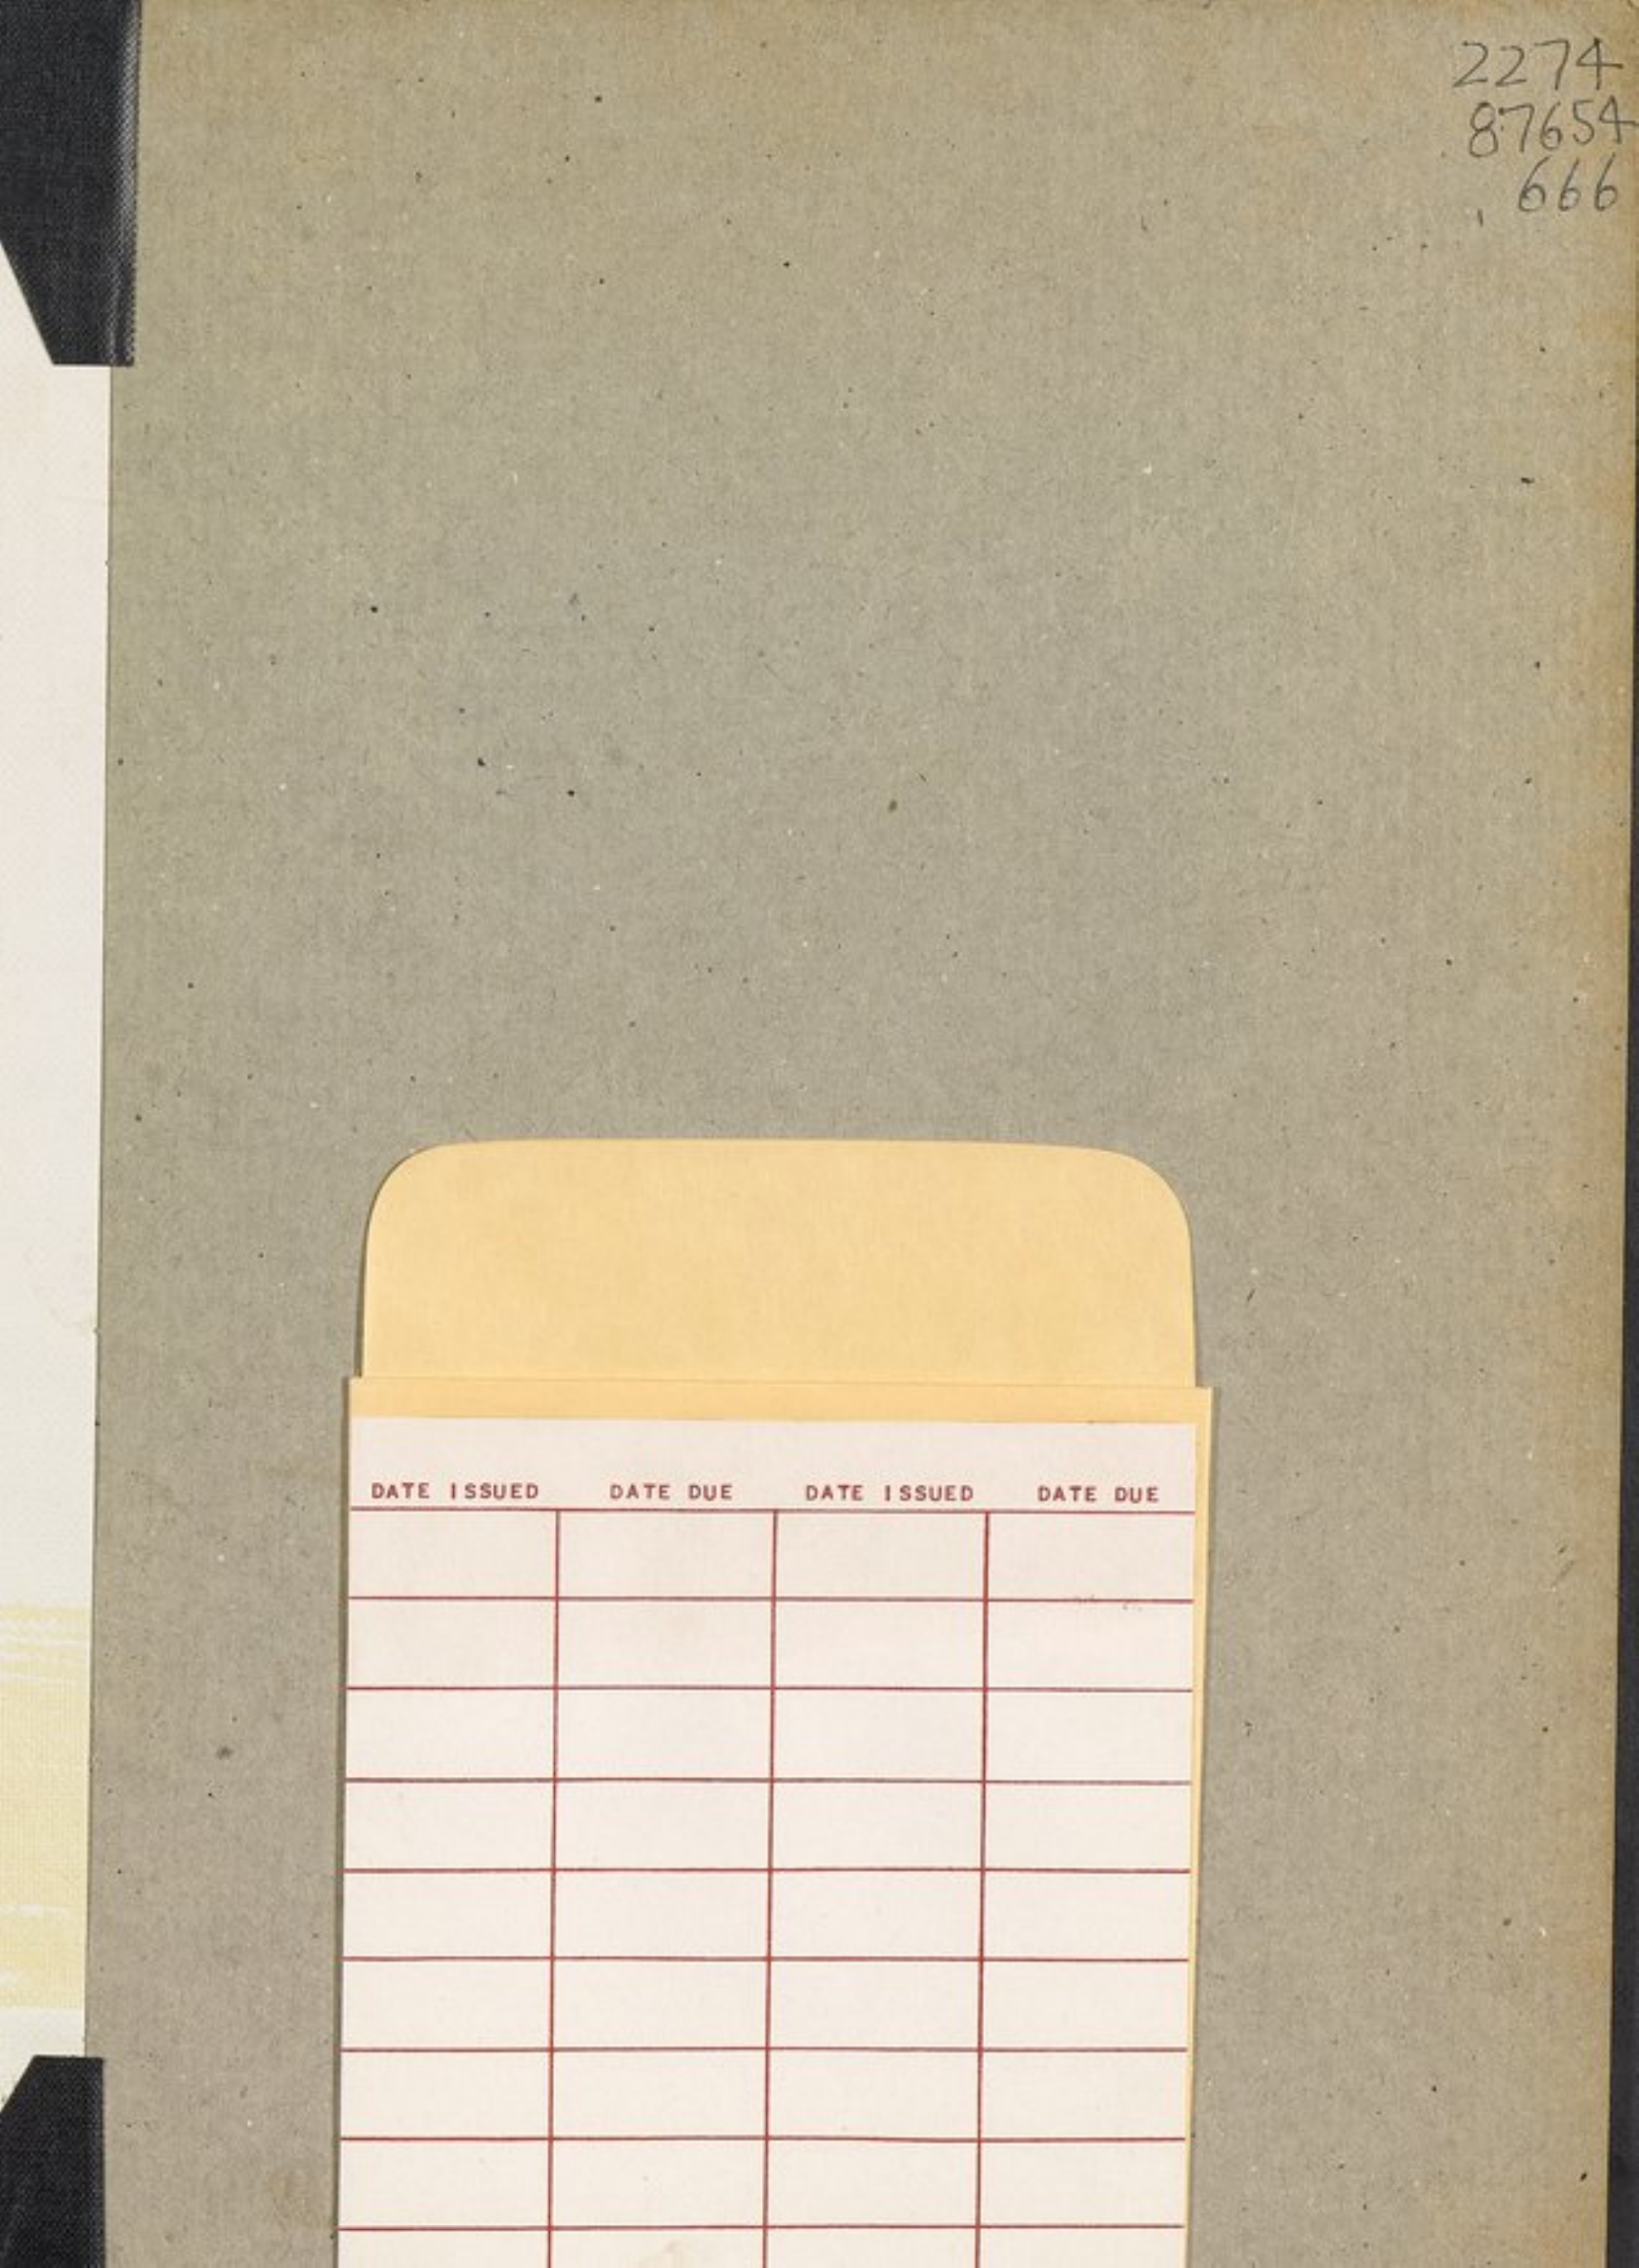 2274
87654
666
DATE ISSUED DATE DUE DATE ISSUED DATE DUE